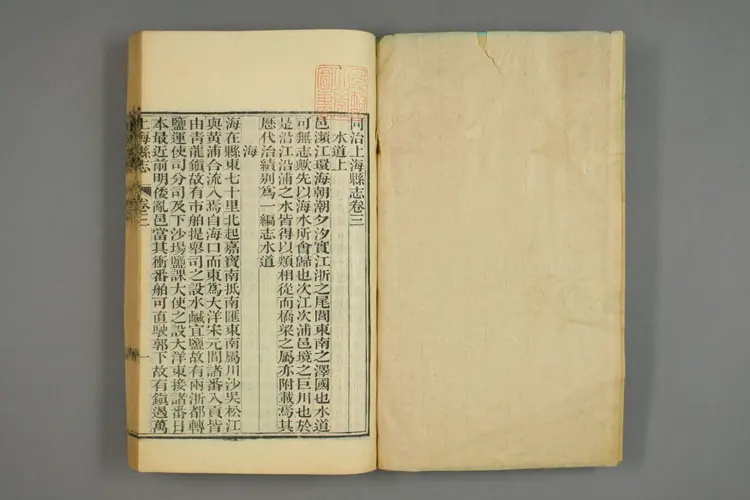 同治上海縣志卷三
水道上
邑瀕江環海朝潮夕汐實江浙之尾閭東南之澤國也水道
可無志歟先以海水所會歸也次江次浦邑境之巨川也於
是沿江沿浦之水皆得以類相從而橋梁之屬亦附載焉其
歷代治績别爲一編志水道
海
海在縣東七十里北起嘉寶南抵南匯東南屬川沙吳松江
與黃浦合流入焉自海口而東爲大洋宋元間諸番入貢皆
由青龍鎮故有市舶提舉司之設水鹹宜鹽故有兩浙都轉
鹽運使司分司及下沙場鹽課大使之設大洋東接諸番日
本最近前明倭亂邑當其衝番舶可直駛郭下故有鎮遏萬
上海縣志
卷三
一